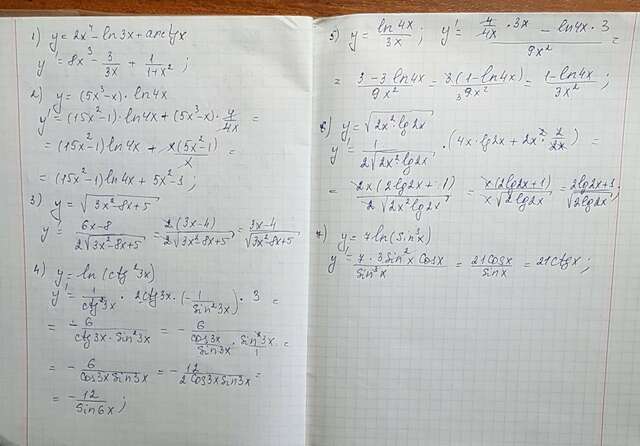 1) y = 2x⁴ - ln3x + arctgx
y' = 8x³ - 3/3x + 1/(1+x²);
2) y = (5x³-x)·ln4x
y' = (15x²-1)·ln4x + (5x³-x)·4/4x =
= (15x²-1)ln4x + x(5x²-1)/x =
= (15x²-1)ln4x + 5x²-1;
3) y = √(3x²-8x+5)
y' = (6x-8)/(2√(3x²-8x+5)) = 2(3x-4)/(2√(3x²-8x+5)) = (3x-4)/√(3x²-8x+5)
4) y = ln(ctg²3x)
y' = 1/ctg²3x · 2ctg3x·(-1/sin²3x)·3 =
= -6/(ctg3x·sin²3x) = -6/(cos3x/sin3x · sin²3x/1) =
= -6/(cos3x sin3x) = -12/(2cos3x sin3x) =
= -12/sin6x;
5) y = ln4x/3x; y' = (4/4x·3x - ln4x·3)/9x² =
= (3-3ln4x)/9x² = 3(1-ln4x)/9x² = (1-ln4x)/3x²;
6) y = √(2x²·lg2x)
y' = 1/(2√(2x²lg2x)) · (4x·lg2x + 2x²·2/2x) =
= 2x(2lg2x+1)/(2√(2x²lg2x)) = x(2lg2x+1)/(x√(2lg2x)) = (2lg2x+1)/√(2lg2x);
7) y = 7ln(sin³x)
y' = 7·3sin²x cosx/sin³x = 21cosx/sinx = 21ctgx;